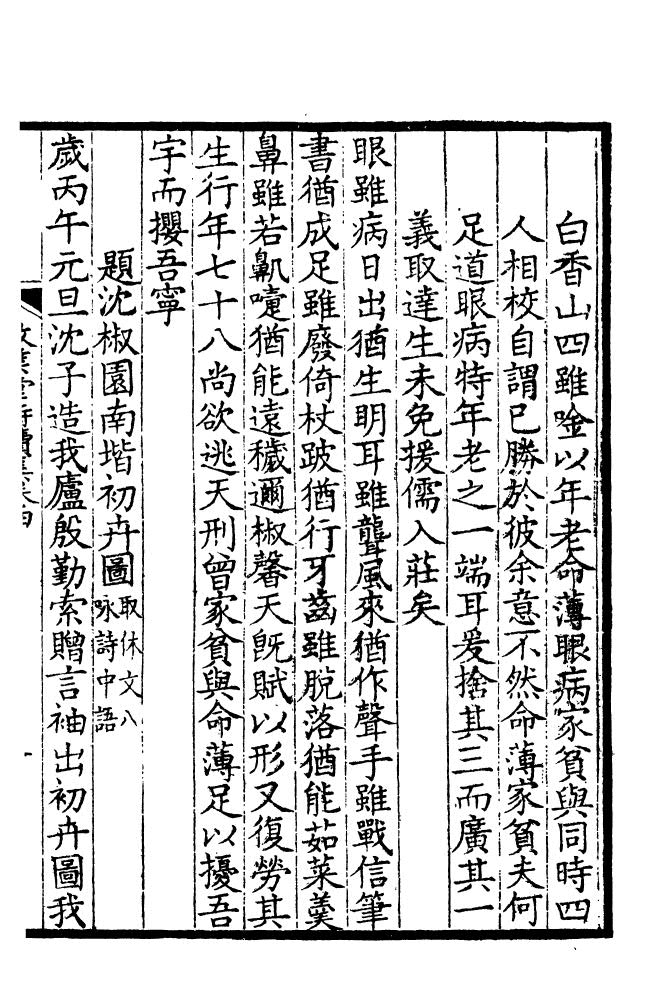 白香山四雖唫以年老命薄眼病家貧與同時四
人相校自謂已勝於彼余意不然命薄家貧夫何
足道眼病特年老之一端耳爰捨其三而廣其一
義取達生未免援儒入莊矣
眼雖病日出猶生明耳雖聾風來猶作聲手雖戰信筆
書猶成足雖廢倚杖跛猶行牙齒雖脫落猶能茹菜羹
鼻雖若鼿嚏猶能遠穢邇椒馨天旣賦以形又復勞其
生行年七十八尚欲逃天刑曾家貧與命薄足以擾吾
宇而攖吾寧
題沈椒園南堦初卉圖取休文八
咏詩中語
歲丙午元旦沈子造我廬殷勤索贈言袖出初卉圖我